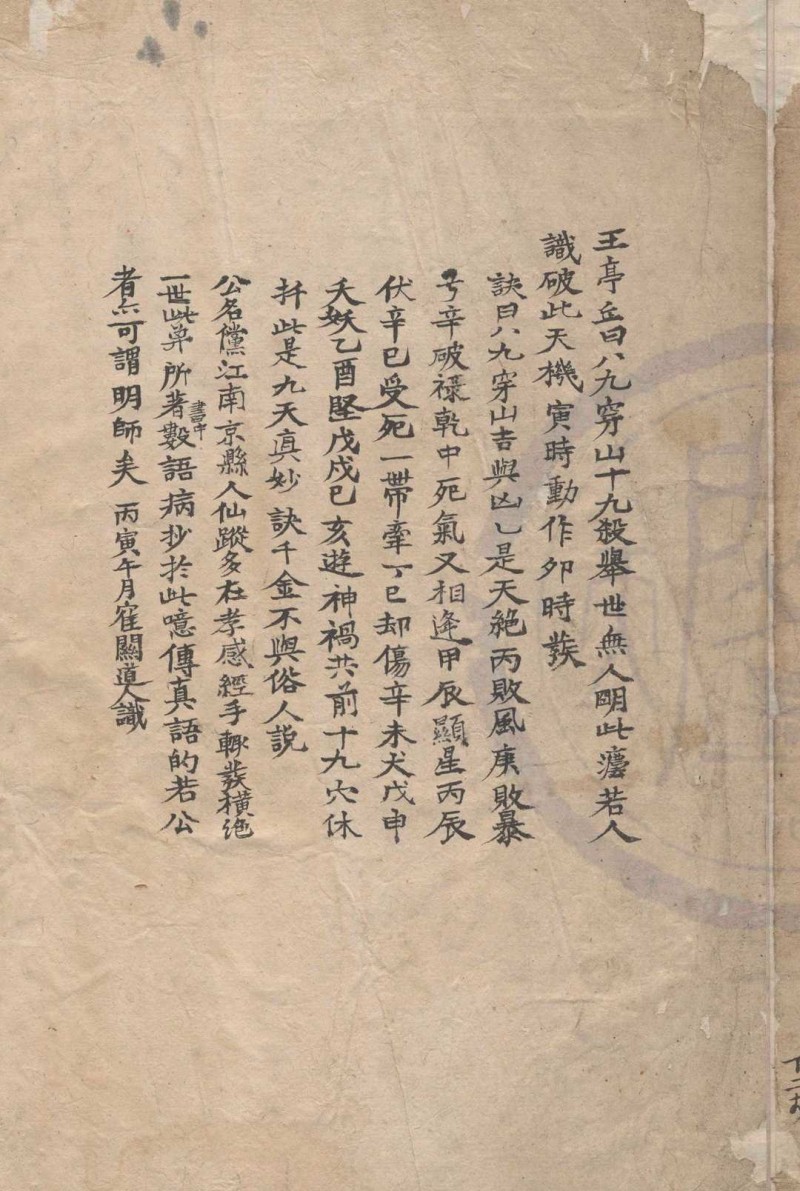 王亭丘曰八九穿山十九殺舉世無人明此瀍若人
識破此天機寅時動作夘時發
訣曰八九穿山吉與凶乙是天絕丙敗風庚敗暴
兮辛破祿乾中死氣又相逢甲辰顯星丙辰
伏辛巳受死一帶牽丁巳却傷辛未犬戊申
夭妖乙酉堅戊戍巳亥遊神禍共前十九穴休
扦此是九天真妙訣千金不與俗人説
公名儻江南京縣人仙蹤多在孝感經手輙發橫绝
一世此萛所著書中數語病抄於此噫傳真語的若公
者亦可謂明師矣 丙寅午月寉關道人識